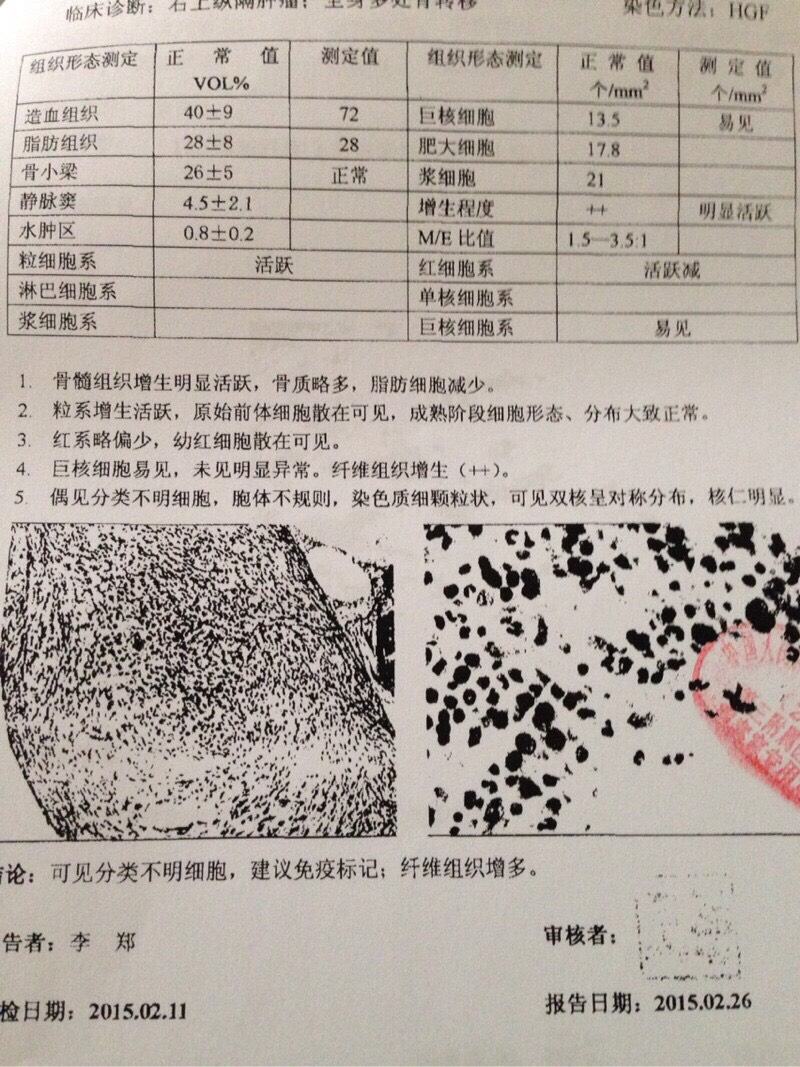 临床诊断：右上纵隔肿瘤；全身多处骨转移 染色方法：HGF
组织形态测定 正常值 VOL% 测定值 组织形态测定 正常值 个/mm² 测定值 个/mm²
造血组织 40±9 72 巨核细胞 13.5 易见
脂肪组织 28±8 28 肥大细胞 17.8
骨小梁 26±5 正常 浆细胞 21
静脉窦 4.5±2.1 增生程度 ++ 明显活跃
水肿区 0.8±0.2 M/E 比值 1.5—3.5:1
粒细胞系 活跃 红细胞系 活跃减
淋巴细胞系 单核细胞系
浆细胞系 巨核细胞系 易见
1. 骨髓组织增生明显活跃，骨质略多，脂肪细胞减少。
2. 粒系增生活跃，原始前体细胞散在可见，成熟阶段细胞形态、分布大致正常。
3. 红系略偏少，幼红细胞散在可见。
4. 巨核细胞易见，未见明显异常。纤维组织增生（++）。
5. 偶见分类不明细胞，胞体不规则，染色质细颗粒状，可见双核呈对称分布，核仁明显。
结论：可见分类不明细胞，建议免疫标记；纤维组织增多。
告者：李 郑 审核者：
检日期：2015.02.11 报告日期：2015.02.26